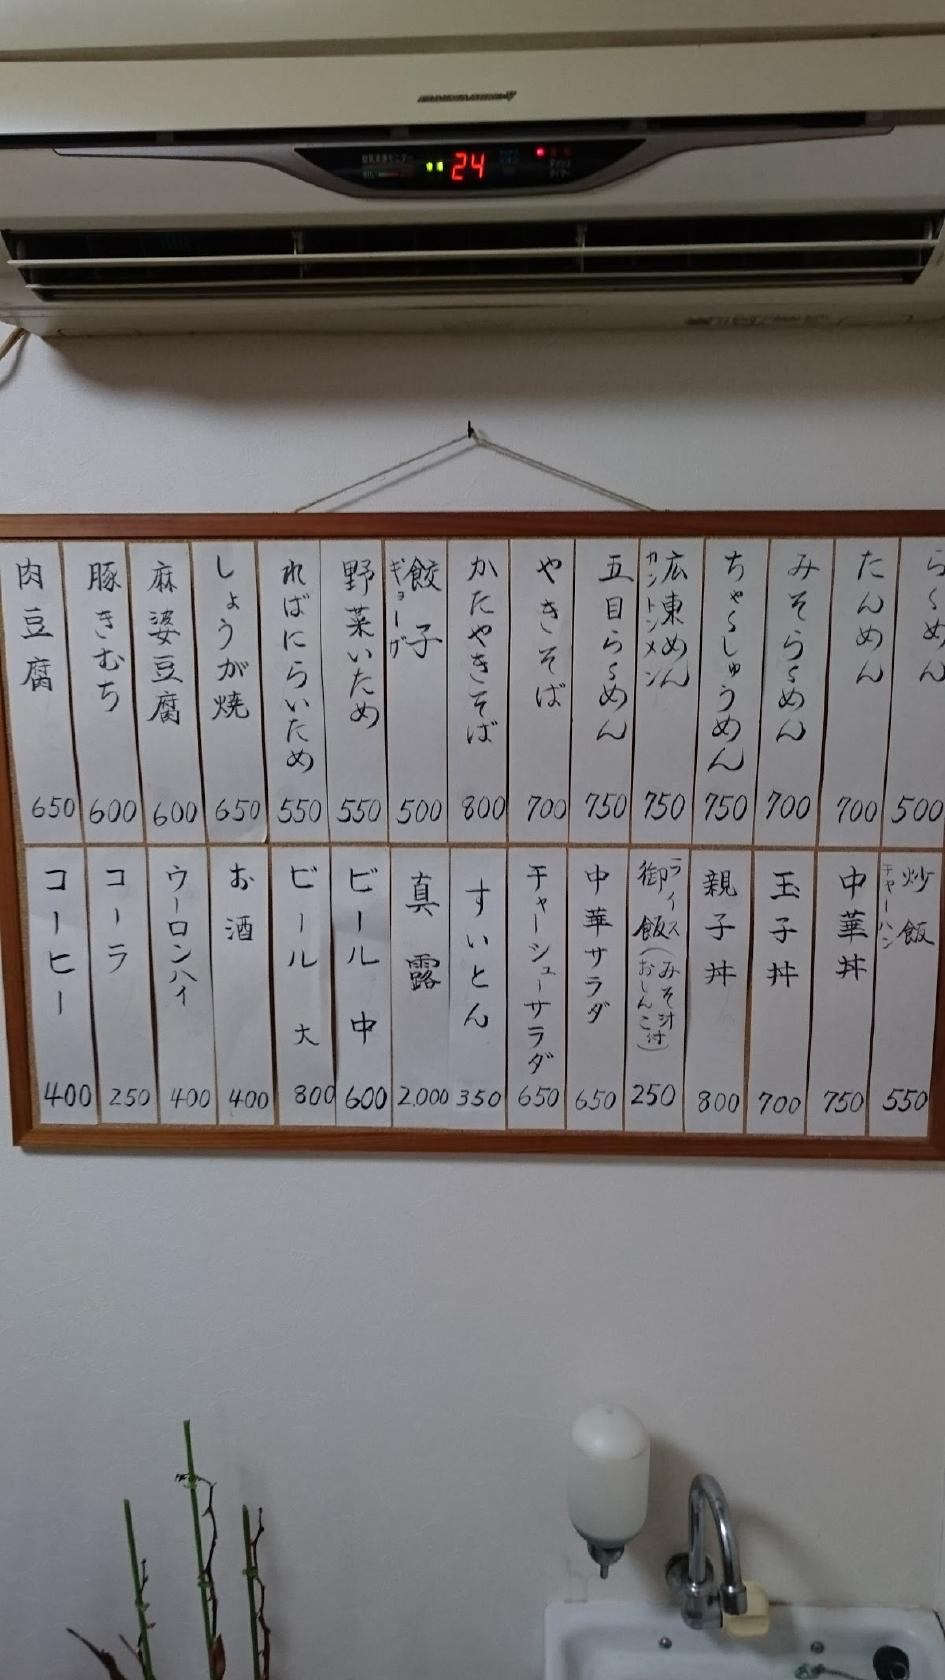 24
らーめん 500
たんめん 700
みそらーめん 700
ちゃーしゅうめん 750
広東めん カントンメン 750
五目らーめん 750
やきそば 700
かたやきそば 800
餃子 ギョーザ 500
野菜いため 550
ればにらいため 550
しょうが焼 650
麻婆豆腐 600
豚きむち 600
肉豆腐 650
炒飯 チャーハン 550
中華丼 750
玉子丼 700
親子丼 800
御飯 ライス (みそ汁付 おしんこ付) 250
中華サラダ 650
チャーシューサラダ 650
すいとん 350
真露 2,000
ビール 中 600
ビール 大 800
お酒 400
ウーロンハイ 400
コーラ 250
コーヒー 400